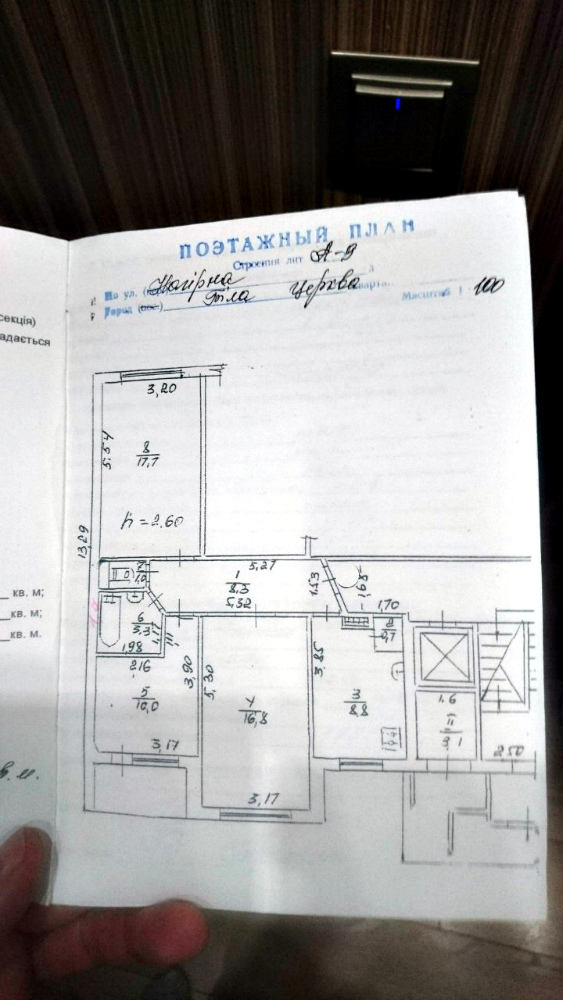 ПОЭТАЖНЫЙ ПЛАН
Строения лит А-9
По ул. Нагірна
Город Біла Церква Масштаб 1 : 100
секція)
адається
кв. м;
кв. м;
кв. м.
в. м.
3,20
5.54
8
17,7
h = 2.60
13,29
7
1,0
5,27
1
8,3
5,32
1.53
1,68
1,70
6
3,3
1,17
1,11
1,98
2,16
5
10,0
3,90
5,30
3,17
4
16,8
3,17
3,85
3
8,8
2
0,7
1.6
II
3,1
2,50